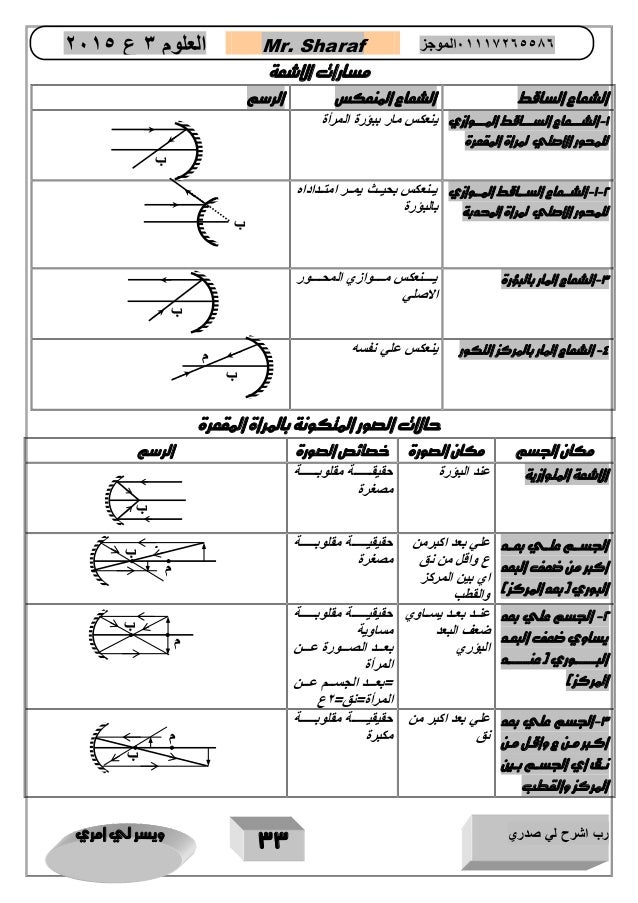 العلوم ٣ ع ٢٠١٥
Mr. Sharaf
٠١١١٧٢٦٥٥٨٦الموجز
مسارات الاشعة
الشعاع الساقط
الشعاع المنعكس
الرسم
١-الشعاع الساقط الموازي
للمحور الاصلي لمراة المقعرة
ينعكس مار ببؤرة المرأة
ب
٢-١-الشعاع الساقط الموازي
للمحور الاصلي لمراة المحدبة
ينعكس بحيث يمر امتداداه
بالبؤرة
ب
٣-الشعاع المار بالبؤرة
ينعكس موازي المحور
الاصلي
ب
٤- الشعاع المار بالمركز التكور
ينعكس علي نفسه
م
ب
حالات الصور المتكونة بالمراة المقعرة
مكان الجسم
مكان الصورة
خصائص الصورة
الرسم
الاشعة المتوازية
عند البؤرة
حقيقة مقلوبة
مصغرة
ب
الجسم علي بعد
اكبر من ضعف البعد
البوري (بعد المركز)
علي بعد اكبرمن
ع واقل من نق
اي بين المركز
والقطب
حقيقية مقلوبة
مصغرة
ب
م
٢- الجسم علي بعد
يساوي ضعف البعد
البوري (عند
المركز)
عند بعد يساوي
ضعف البعد
البؤري
حقيقية مقلوبة
مساوية
بعد الصورة عن
المرأة
=بعد الجسم عن
المرأة=نق=٢ع
ب
م
٣-الجسم علي بعد
اكبر من ع واقل من
نق اي الجسم بين
المركز والقطب
علي بعد اكبر من
نق
حقيقية مقلوبة
مكبرة
م
ب
رب اشرح لي صدري
٣٣
ويسر لي امري